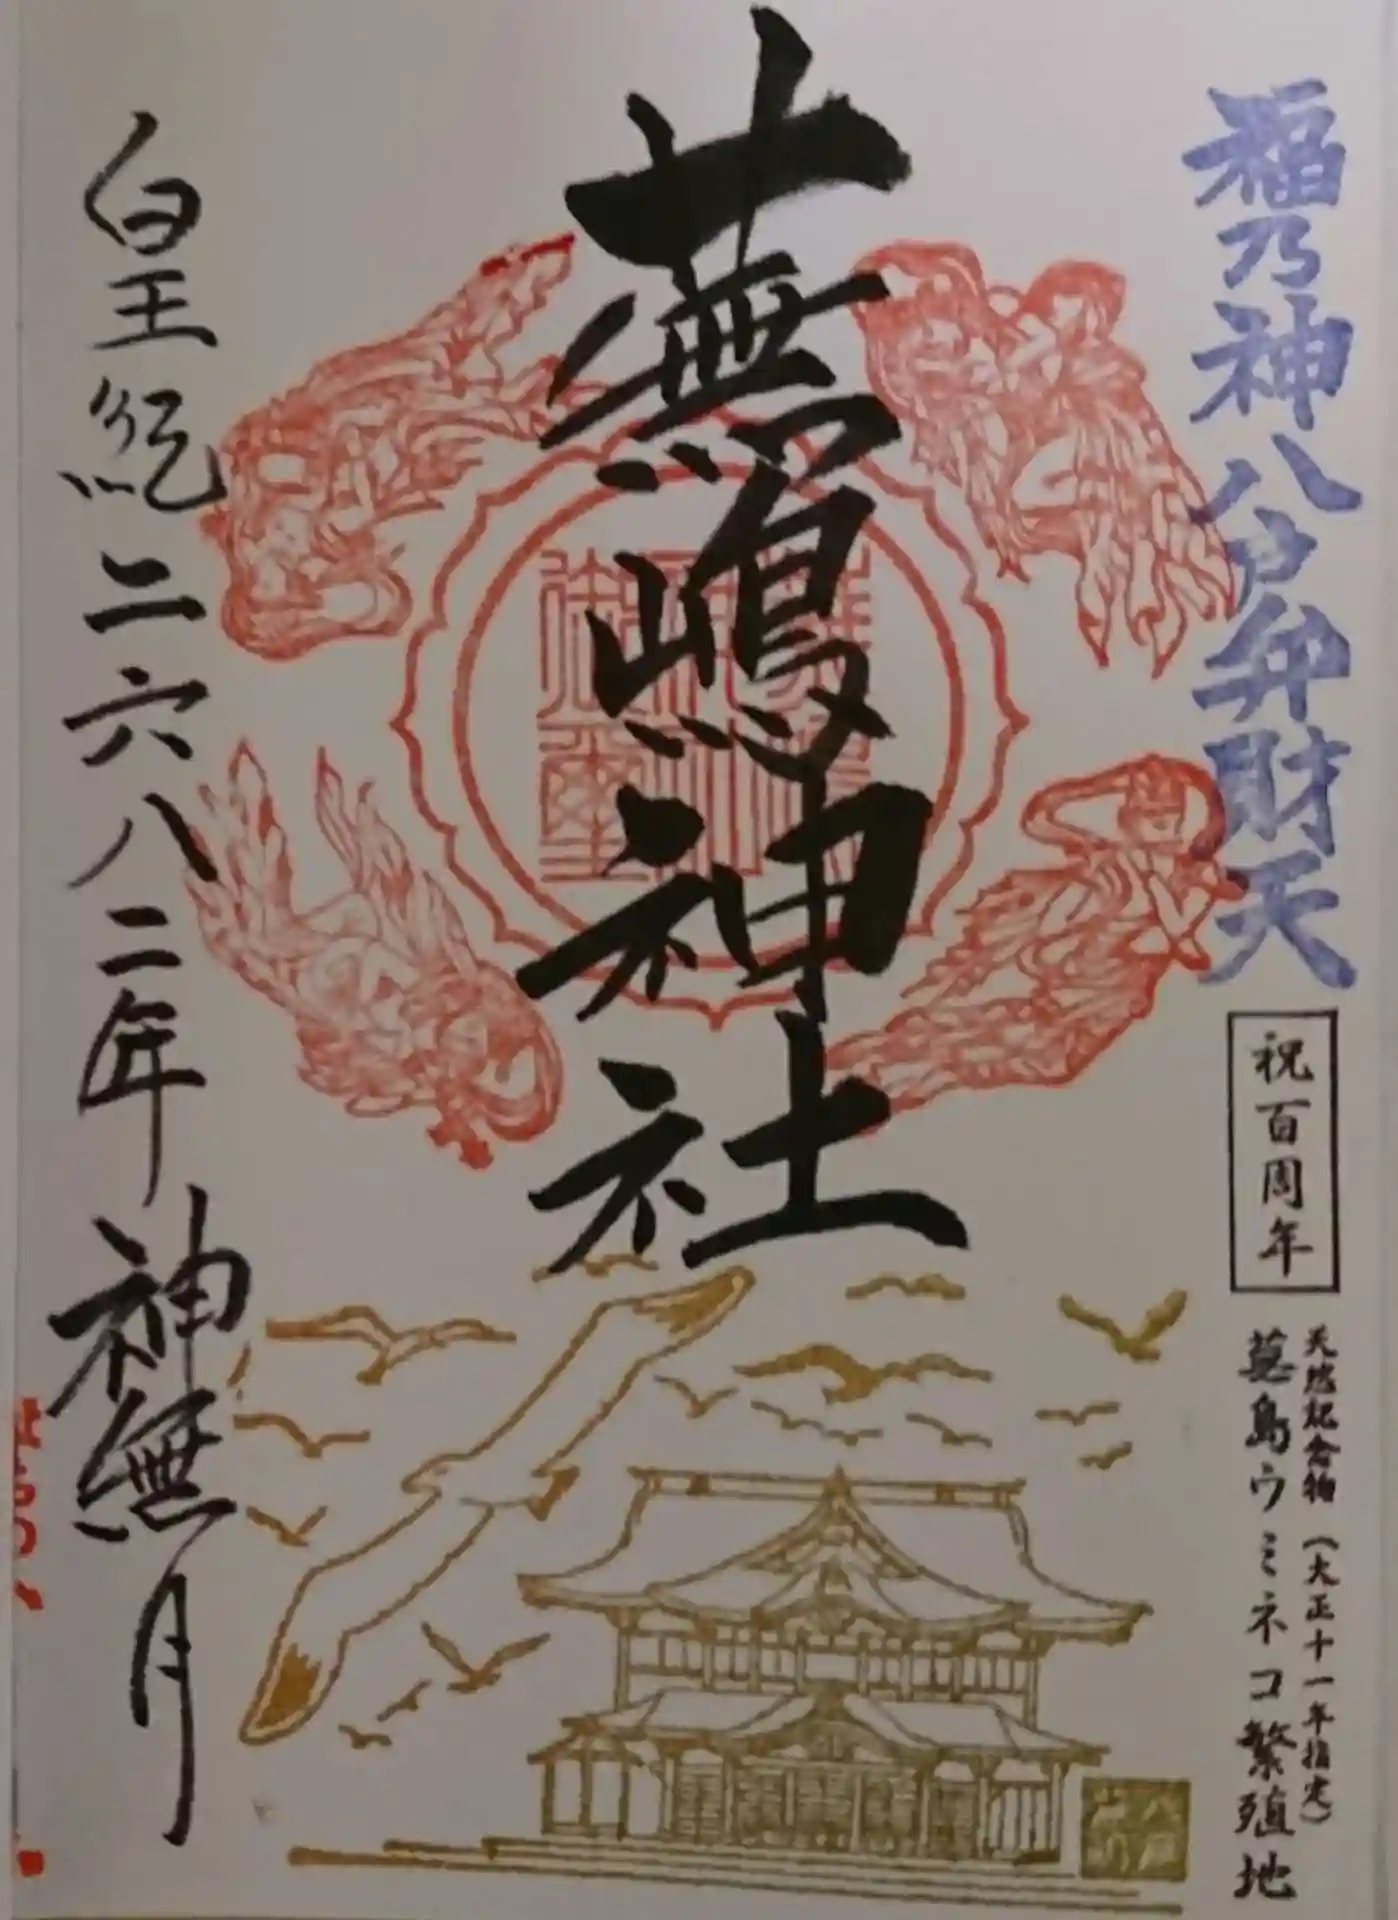 福乃神八戸弁財天
祝百周年
天然記念物（大正十一年指定）
蕪島ウミネコ繁殖地
蕪嶋神社
皇紀二六八二年神無月